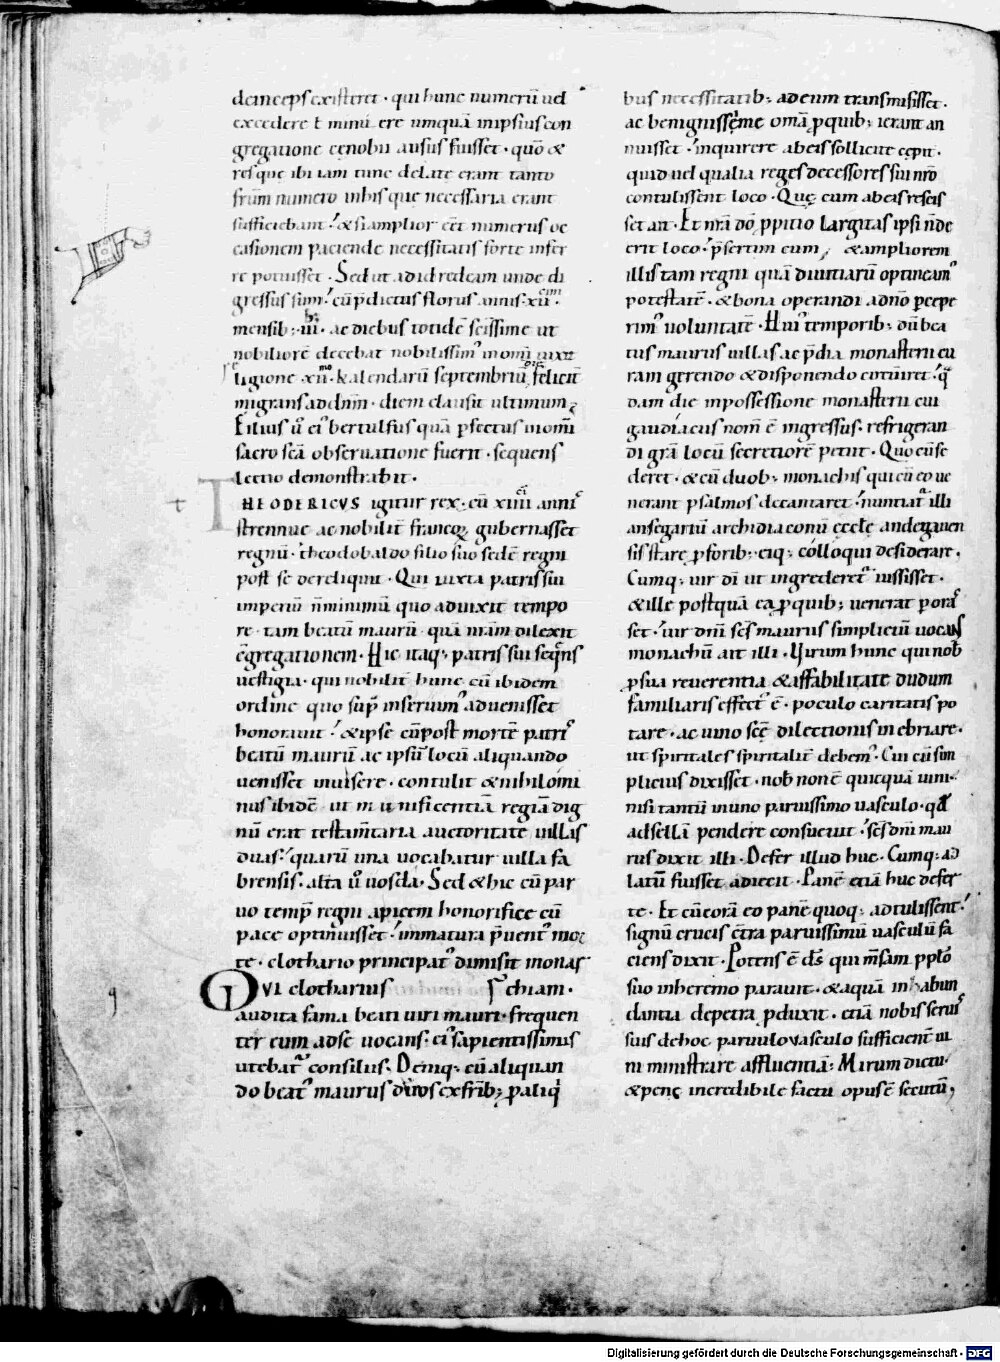 deinceps existeret · qui hunc numerū vel
excedere t minuere umquā in ipsius con
gregatione cenobii ausus fuisset · quō &
res que ibi iam tunc delate erant tanto
frūm numero in his que necessaria erant
sufficiebant · & si amplior eēt numerus oc
casionem paciende necessitatis forte infer
re potuisset · Sed ut ad id redeam unde di
gressus sum · cū p̄dictus florus annis · xii ·
mensib; · iii · ac diebus totidē scīssime ut
nobiliorē decebat nobilissimꝰ in omī uixit
ligione xii kalendarū septembriū feliciť
migrans ad dn̄m · diem clausit ultimum
Filius ū eiꝰ bertulfus quā ꝑfectus in omī
sacro scā obseruatione fuerit · sequens
lectio demonstrabit ·
THEODERICVS igitur rex · cū xiiii annis
strennue ac nobilit̄ francoꝝ gubernasset
regnū · theodobaldo filio suo sedē regni
post se dereliquit · Qui iuxta patris sui
imperiū n̄ minimū quo aduixit tempo
re · tam beatū maurū quā n̄ram dilexit
c̄gregationem · Hic itaq; patris sui seq̄ns
uestigia · qui nobilit̄ hunc cū ibidem
ordine quo sup̄ inseruimꝰ aduenisset
honorauit · & ipse cū post mortē patrꝭ
beatū maurū ac ipsū locū aliquando
uenisset inuisere · contulit & nihilomi
nus ibidē ut munificentiā regiā dig
nū erat testam̄taria auctoritate uillas
duas · quarū una vocabatur uilla fa
brensis · alt̄a ū uosda · Sed & hic cū par
uo temp̄ regni apicem honorifice cū
pace optinuisset · immatura p̄uentꝰ moꝛ
te · clothario principatꝰ dimisit monar
QVI clotharius chiam ·
audita fama beati uiri mauri · frequen
ter eum ad se uocans · eiꝰ sapientissimis
utebatꝰ consilus · Deniq; cū aliquan
do beatꝰ maurus duos ex frīb; ꝑ aliq̇
bus necessitatib; ad eum transmisisset ·
ac benignissime om̄a ꝓ quib; ierant an
nuisset · inquirere ab eis sollicite cepit ·
quid uel qualia reges decessores sui nr̄o
contulissent loco · Que cum ab eis resciś
set ait · Et nr̄a dō ꝓpitio largitas ipsi n̄ de
erit loco · p̄sertim cum & ampliorem
illis tam regni quā diuitiarū optineamꝰ
potestatē · & bona operandi a dn̄o pcepe
rimꝰ uoluntatē · Huiꝰ temporib; dū bea
tus maurus uillas ac p̄dia monasterii cu
ram gerendo & disponendo circuiret · q̄
dam die in possessione monasterii cui
gaudiacus nom̄ ē ingressus · refrigeran
di grā locū secretiorē petiit · Quo cū se
deret · & cū duob; monachis qui cū eo ue
nerant psalmos decantaret · nuntiatꝰ illi
ansegariū archidiaconū ecclē andegauen
sis stare ꝑ forib; eiq; colloqui desiderare ·
Cumq; uir dī ut ingrederetꝰ iussisset ·
& ille postquā ea ꝓ quib; uenerat ꝑoraſ
set · uir dn̄i scs̄ maurus simpliciū uocans
monachū ait illi · Virum hunc qui nob̄
ꝑ sua reuerentia & affabilitate dudum
familiaris effectꝰ ē · poculo caritatis po
tare · ac uino scē dilectionis inebriare ·
ut spiritales spiritalit̄ debemꝰ · Cui cū sim
plicius dixisset · nob̄ non ē quicquā uini ·
nisi tantū in uno paruissimo uasculo · qd̄
ad sellā pendere consueuit · scs̄ dn̄i mau
rus dixit illi · Defer illud huc · Cumq; al
latū fuisset adiecit · Panē etiā huc defer
te · Et cū corā eo panē quoq; adtulissent ·
signū crucis c̄tra paruissimū uasculū fa
ciens dixit · Potens ē dś qui m̄sam pplō
suo in heremo parauit · & aquā in habun
dantia de petra ꝓduxit · etiā nobis seruꝭ
suis de hoc paruulo uasculo sufficient̄ ui
ni ministrare affluentiā · Mirum dictu ·
& penę incredibile factu opus ē secutū,
Digitalisierung gefördert durch die Deutsche Forschungsgemeinschaft · DFG